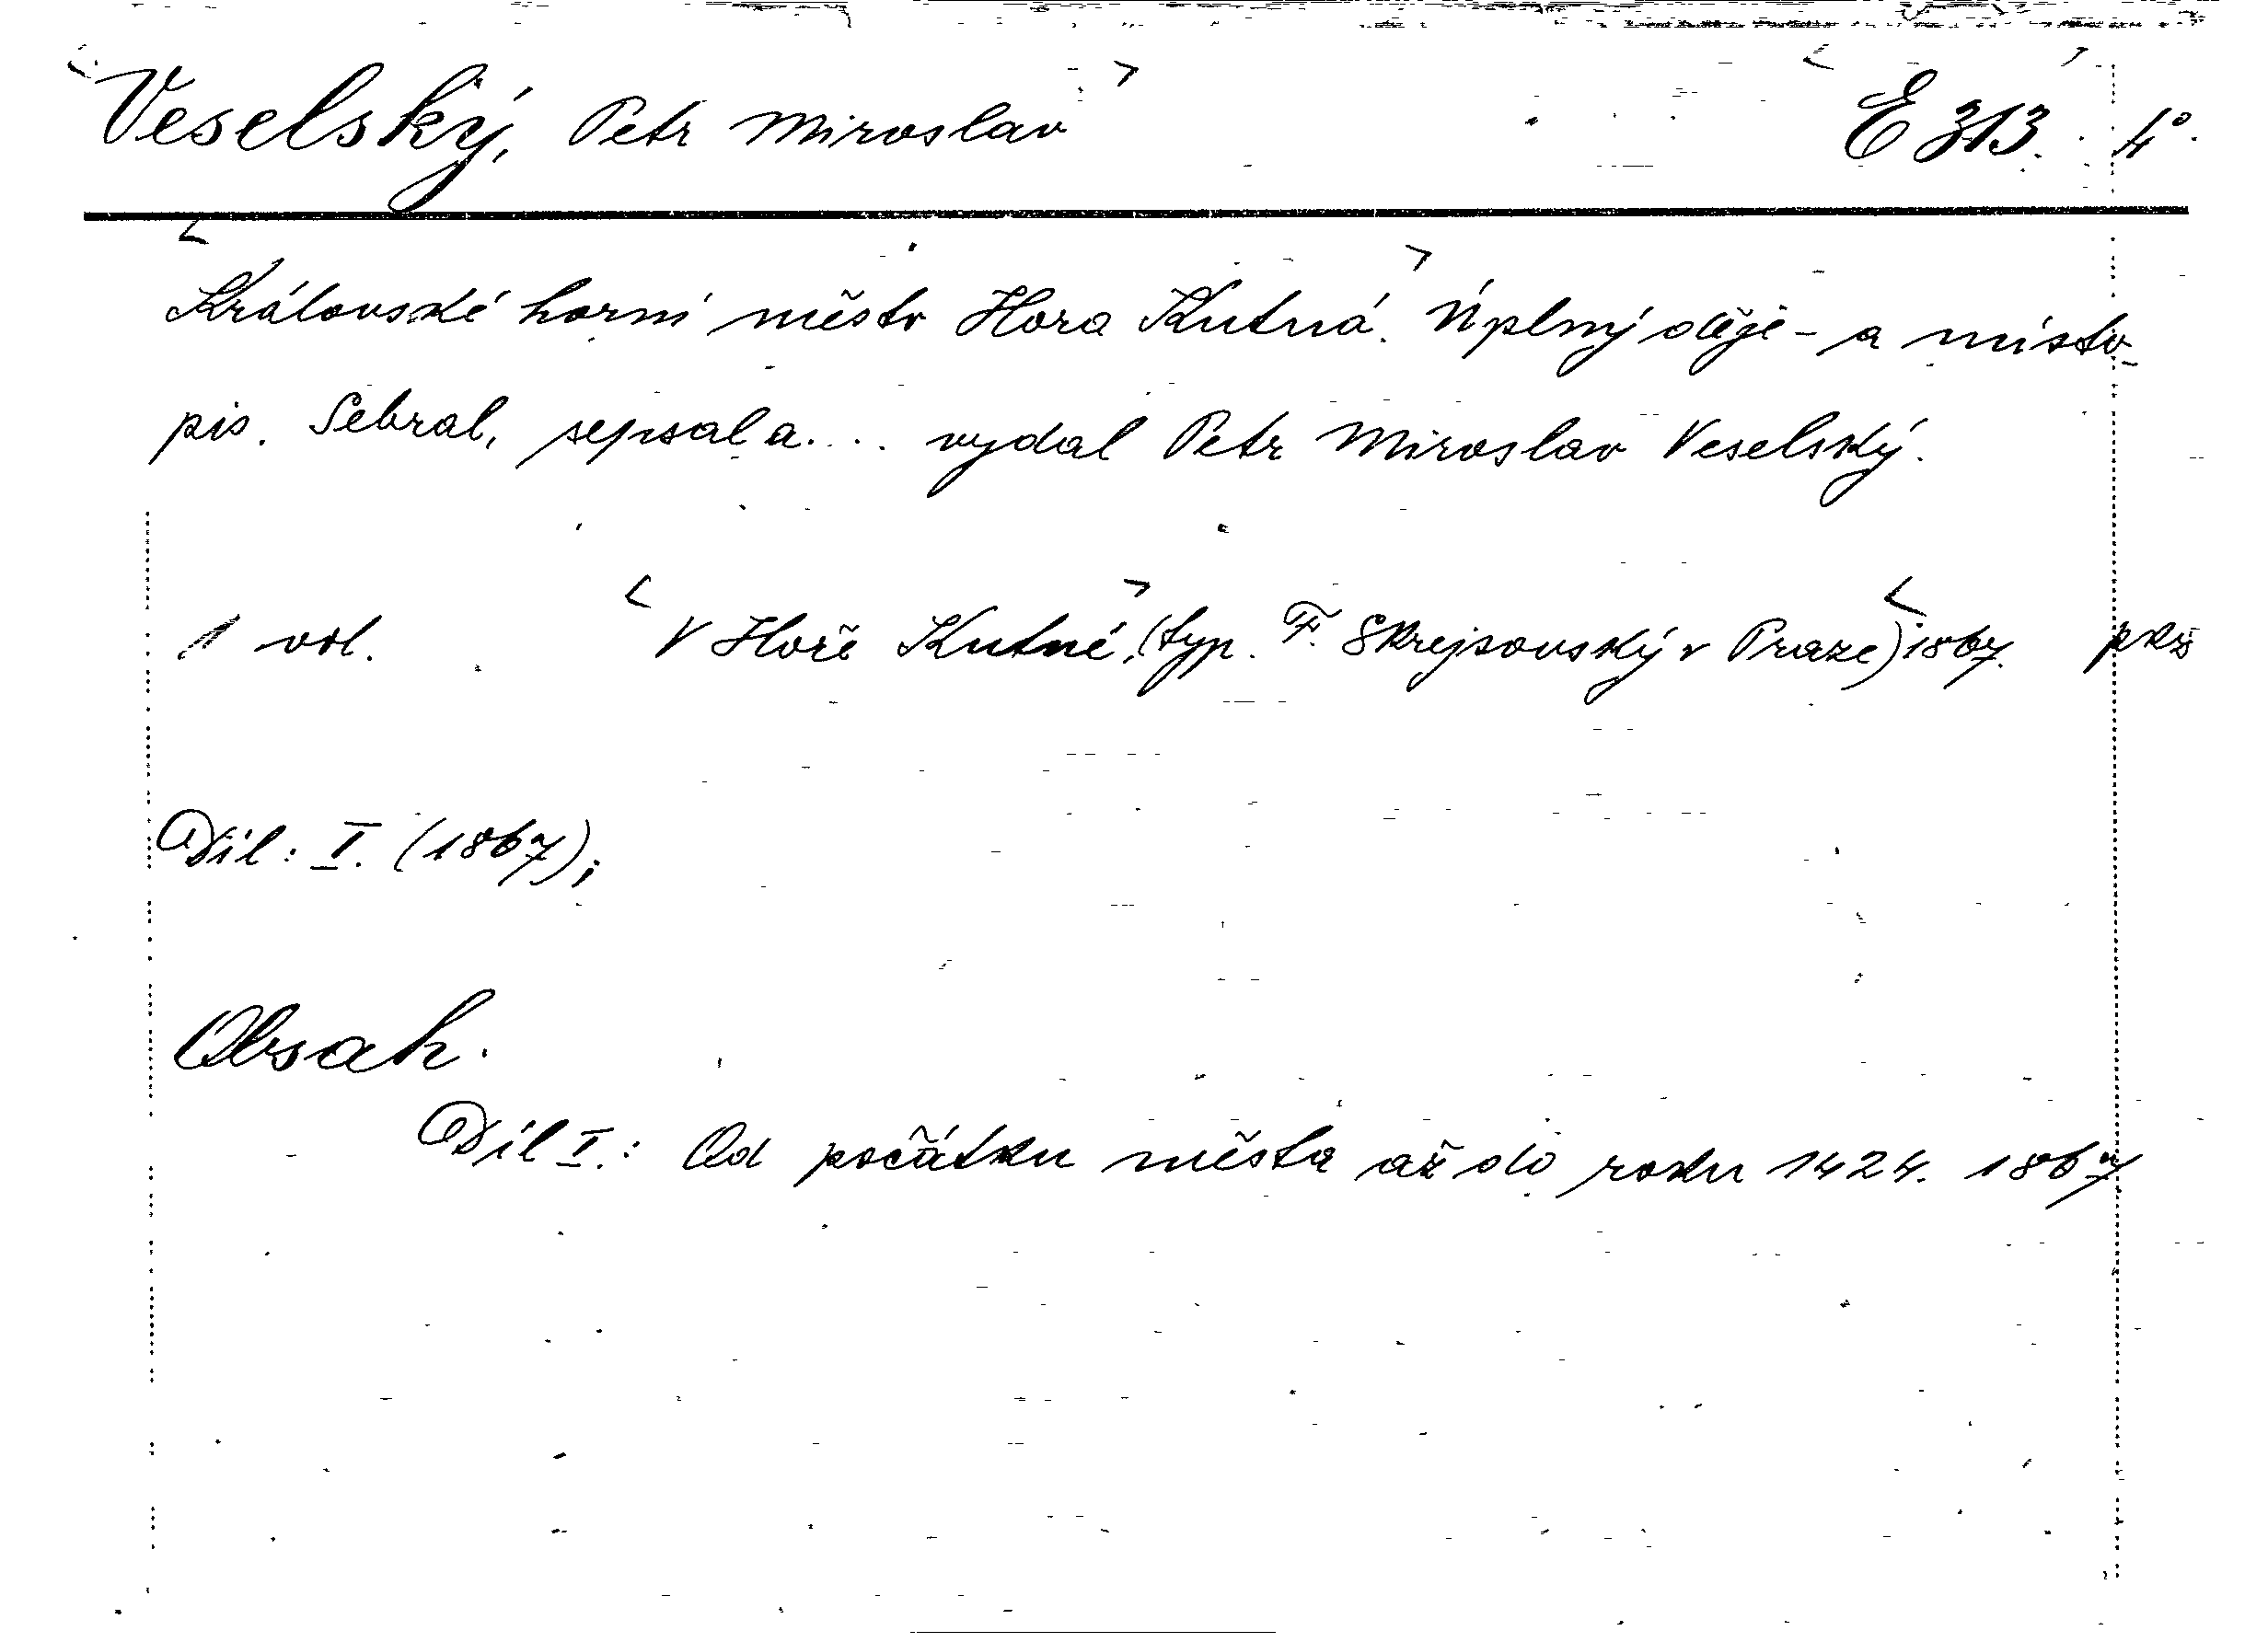 Veselský, Petr Miroslav E 313. 4°.
Královské horní město Hora Kutná. Úplný děje- a místo-
pis. Sebral, sepsal a.... vydal Petr Miroslav Veselský.
1 vol. V Hoře Kutné, (typ. F. Skrejsovský v Praze) 1867. pkž
Díl: I. (1867);
Obsah.
Díl I.: Od počátku města až do roku 1424. 1867